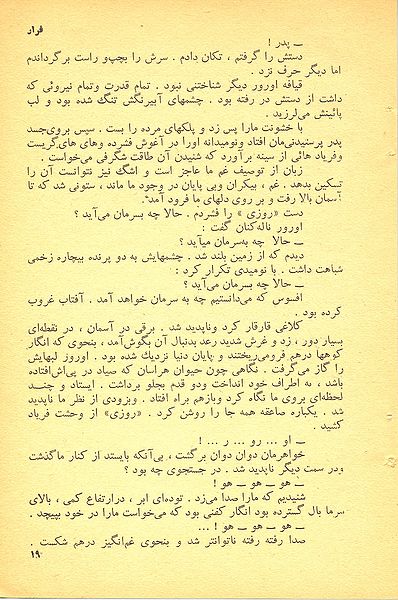 فرار
ــ پدر !
دستش را گرفتم ، تکان دادم . سرش را بچپ‌و راست برگرداندم
اما دیگر حرف نزد .
قیافه اورور دیگر شناختنی نبود . تمام قدرت وتمام نیروئی که
داشت از دستش در رفته بود . چشمهای آبیرنگش تنگ شده بود و لب
پائینش می‌لرزید .
با خشونت مارا پس زد و پلکهای مرده را بست . سپس بروی‌جسد
پدر پرستیدنی‌مان افتاد ونومیدانه اورا در آغوش فشرده وهای های‌گریست
وفریاد هائی از سینه برآورد که شنیدن آن طاقت شگرفی می‌خواست .
زبان از توصیف غم ما عاجز است و اشک نیز نتوانست آن را
تسکین بدهد . غم ، بیکران وبی پایان در وجود ما ماند ، ستونی شد که تا
آسمان بالا رفت و بر روی دلهای ما فرود آمد .
دست «روزی » را فشردم . حالا چه بسرمان می‌آید ؟
اورور ناله‌کنان گفت :
ــ حالا چه بسرمان میآید ؟
دیدم که از زمین بلند شد . چشمهایش به دو پرنده بیچاره زخمی
شباهت داشت . با نومیدی تکرار کرد :
ــ حالا چه بسرمان می‌آید ؟
افسوس که می‌دانستیم چه به سرمان خواهد آمد . آفتاب غروب
کرده بود .
کلاغی قارقار کرد وناپدید شد . برقی در آسمان ، در نقطه‌ای
بسیار دور ، زد و غرش شدید رعد بدنبال آن بگوش‌آمد ، بنحوی که انگار
کوهها درهم فرومی‌ریختند و پایان دنیا نزدیك شده بود . اوروز لبهایش
را گاز می‌گرفت . نگاهی چون حیوان هراسان که صیاد در پی‌اش‌افتاده
باشد ، به اطراف خود انداخت ودو قدم بجلو برداشت . ایستاد و چنـد
لحظه‌ای بروی ما نگاه کرد وبازهم براه افتاد . وبزودی از نظر ما ناپدید
شد . یکباره صاعقه همه جا را روشن کرد . «روزی» از وحشت فریاد
کشید .
ــ او ... رو ... ر ... !
خواهرمان دوان دوان برگشت ، بی‌آنکه بایستد از کنار ماگذشت
ودر سمت دیگر ناپدید شد . در جستجوی چه بود ؟
ــ هو ــ هو ــ هو !
شنیدیم که مارا صدا می‌زد . توده‌ای ابر ، درارتفاع کمی ، بالای
سرما بال گسترده بود انگار کفنی بود که می‌خواست مارا در خود بپیچد .
ــ هو ــ هو ــ هو ! ...
صدا رفته رفته ناتوانتر شد و بنحوی غم‌انگیز درهم شکست .
۱۹